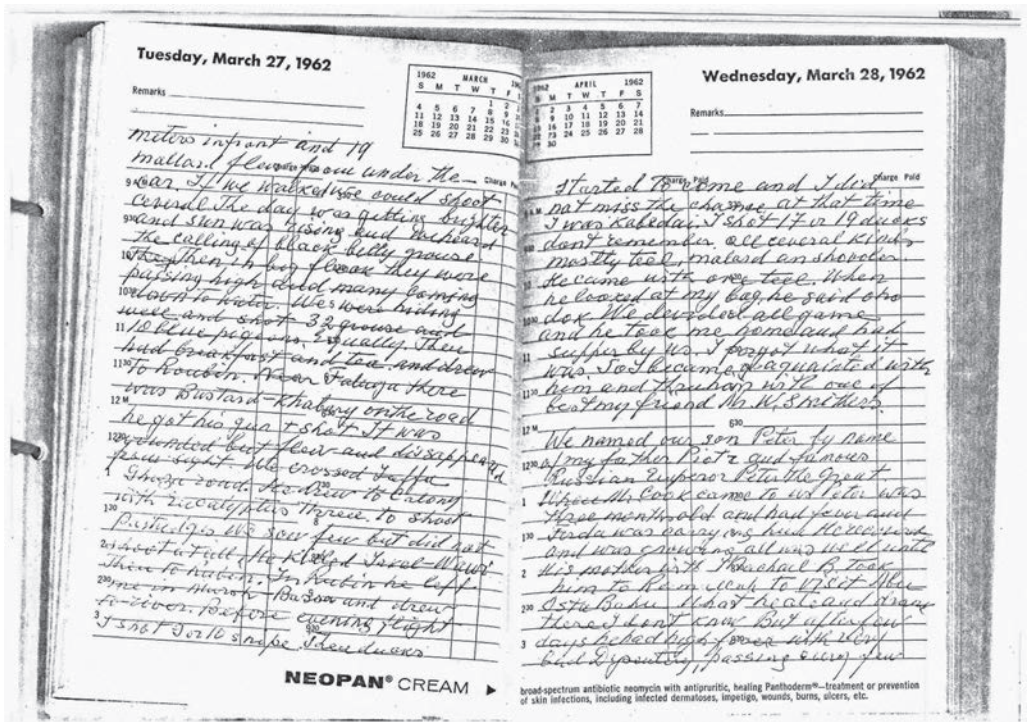 Tuesday, March 27, 1962
1962 MARCH
S M T W T F
1 2
4 5 6 7 8 9
11 12 13 14 15 16
18 19 20 21 22 23
25 26 27 28 29 30
Remarks
meters infront and 19
mallard flew from under the
Charge Paid
car. If we walked we could shoot
several The day was getting brighter
and sun was rising and we heard
the calling of black belly grouse
Then in big flock they were
passing high and many coming
down to water. We were hiding
well and shot 32 grouse and
10 blue pigeons. Equally. Then
had breakfast and tea and drew
to Roubin. Near there
was Bustard - on the road
he got his gun & shot It was
wounded but flew and disappeared
from sight. We crossed Jaffa
Ghaza road. He drew to
with Eucalyptus threee. to shoot
Partridges We saw few but did not
shoot at all. He killed
Then to Rubin. In Rubin he left
me in Marsh - Bassa and drew
to river. Before evening flight
I shot 7 or 10 snipe Then ducks
NEOPAN® CREAM ►
Wednesday, March 28, 1962
1962 APRIL 1962
S M T W T F S
1 2 3 4 5 6 7
8 9 10 11 12 13 14
15 16 17 18 19 20 21
22 23 24 25 26 27 28
29 30
Remarks
Charge Paid
started to come and I did
not miss the chance at that time
I was Kabedai. I shot 17 or 19 ducks
don't remember. all ceveral kinds
mostly teel, malard an shoveler.
He came with one teel. When
he looked at my bag, he said oho
dok. We devided all game
and he took me home and had
supper by us. I forgot what it
was. So I became aquainted with
him and with one of
best my friend Mr W. Smithers.
We named our son Peter by name
of my father Piotr and famous
Russian Emperor Peter the Great
When Mr Cook came to us Peter was
three month old and had fever and
was carryong him He recoverd
and was growing all was well until
His mother with B. took
him to to visit Abu
What he ate and drank
there I don't know But after few
days he had high fever with very
bad Dysentery, passing every few
broad-spectrum antibiotic neomycin with antipruritic, healing Panthoderm®—treatment or prevention
of skin infections, including infected dermatoses, impetigo, wounds, burns, ulcers, etc.